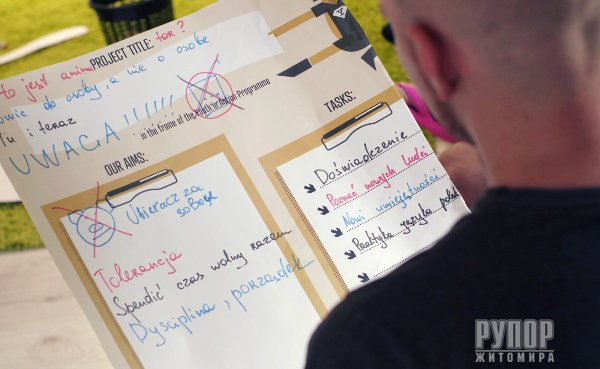 PROJECT TITLE: tor?
to jest anima
ówić do osoby, a nie o osobie
Tu i teraz
UWAGA!!!!!!
in the frame of the Youth in Action Programme
OUR AIMS:
Ubieracz za
sobą
Tolerancja
Spendić czas wolny razem
Dyscyplina, porządek
TASKS:
Doświadczenie
Poznać nowych ludzi
Nowi umiejętności
Praktyka języka pols
РУПОР
ЖИТОМИРА